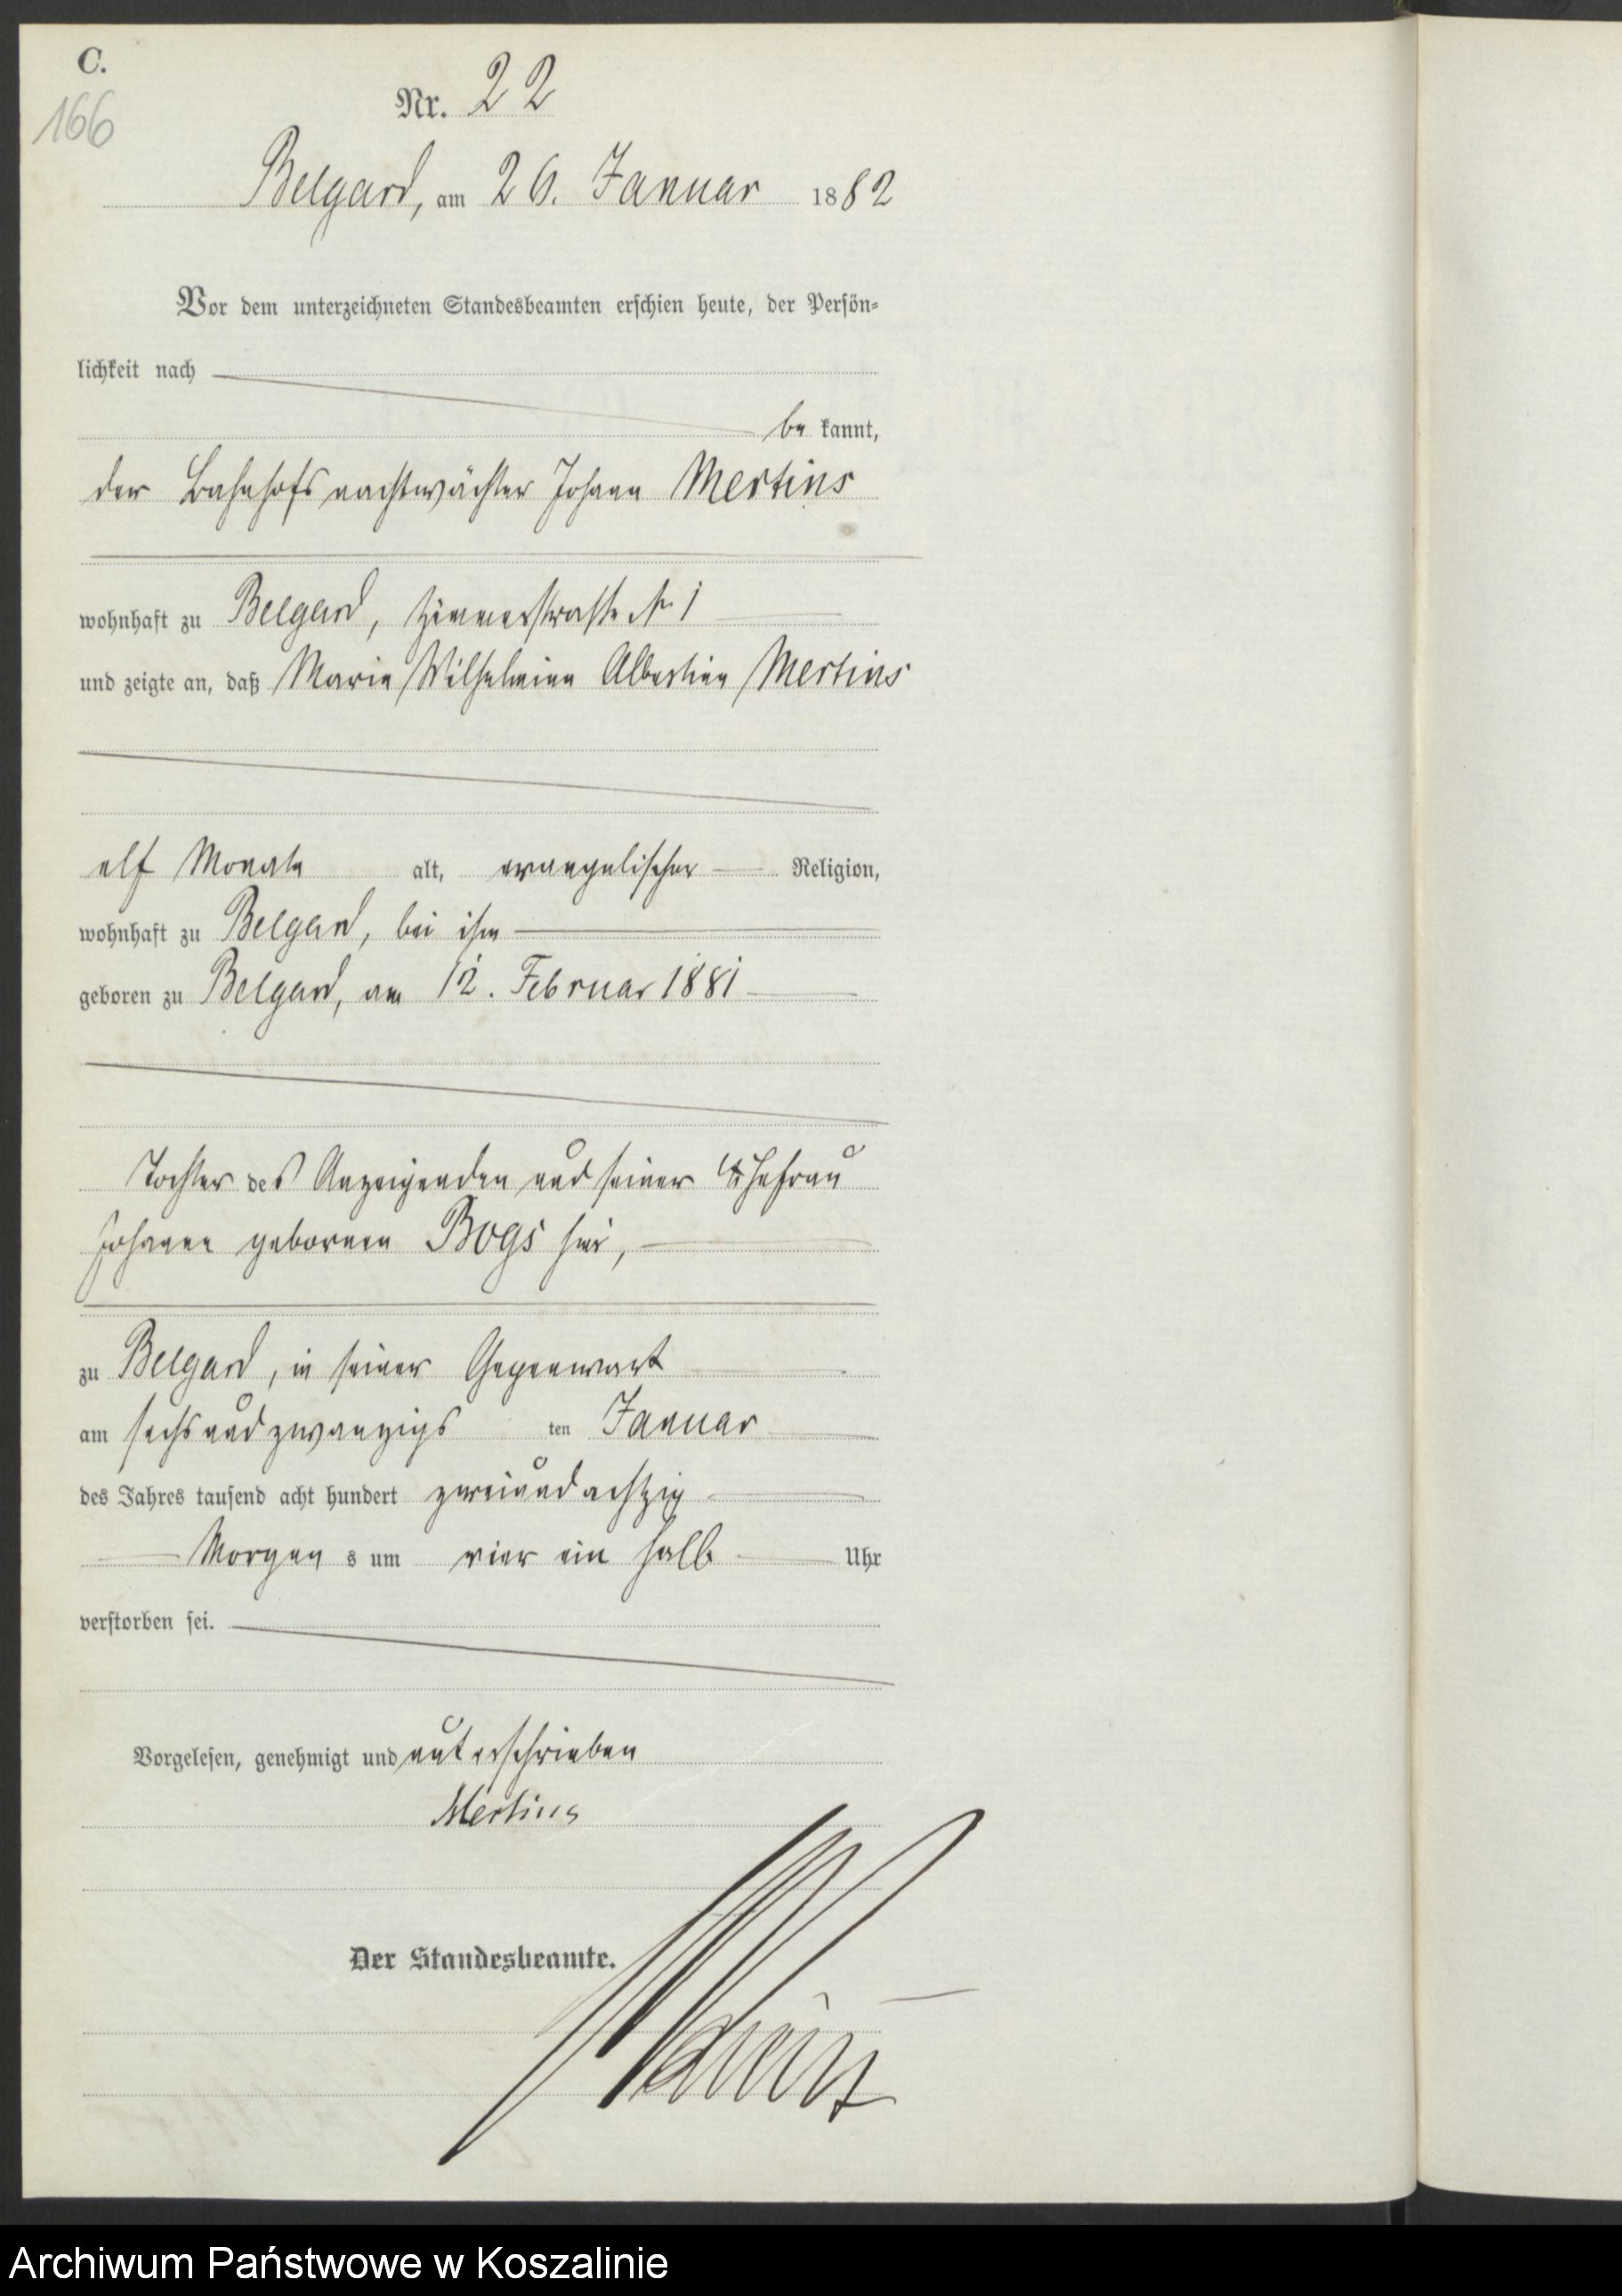 C.
166
Nr. 22
Belgard, am 26. Januar 1882
Vor dem unterzeichneten Standesbeamten erschien heute, der Persön-
lichkeit nach
be kannt,
der Bahnhofsnachtwächter Johann Mertins
wohnhaft zu Belgard, Zimmerstraße № 1
und zeigte an, daß Marie Wilhelmine Albertine Mertins
elf Monate alt, evangelischer Religion,
wohnhaft zu Belgard, bei ihm
geboren zu Belgard, am 12. Februar 1881
Tochter des Anzeigenden und seiner Ehefrau
Johanne geborenen Bogs hier,
zu Belgard, in seiner Gegenwart
am sechsundzwanzigs ten Januar
des Jahres tausend acht hundert zweiundachtzig
Morgen s um vier ein halb Uhr
verstorben sei.
Vorgelesen, genehmigt und unterschrieben
Mertins
Der Standesbeamte.
Archiwum Państwowe w Koszalinie